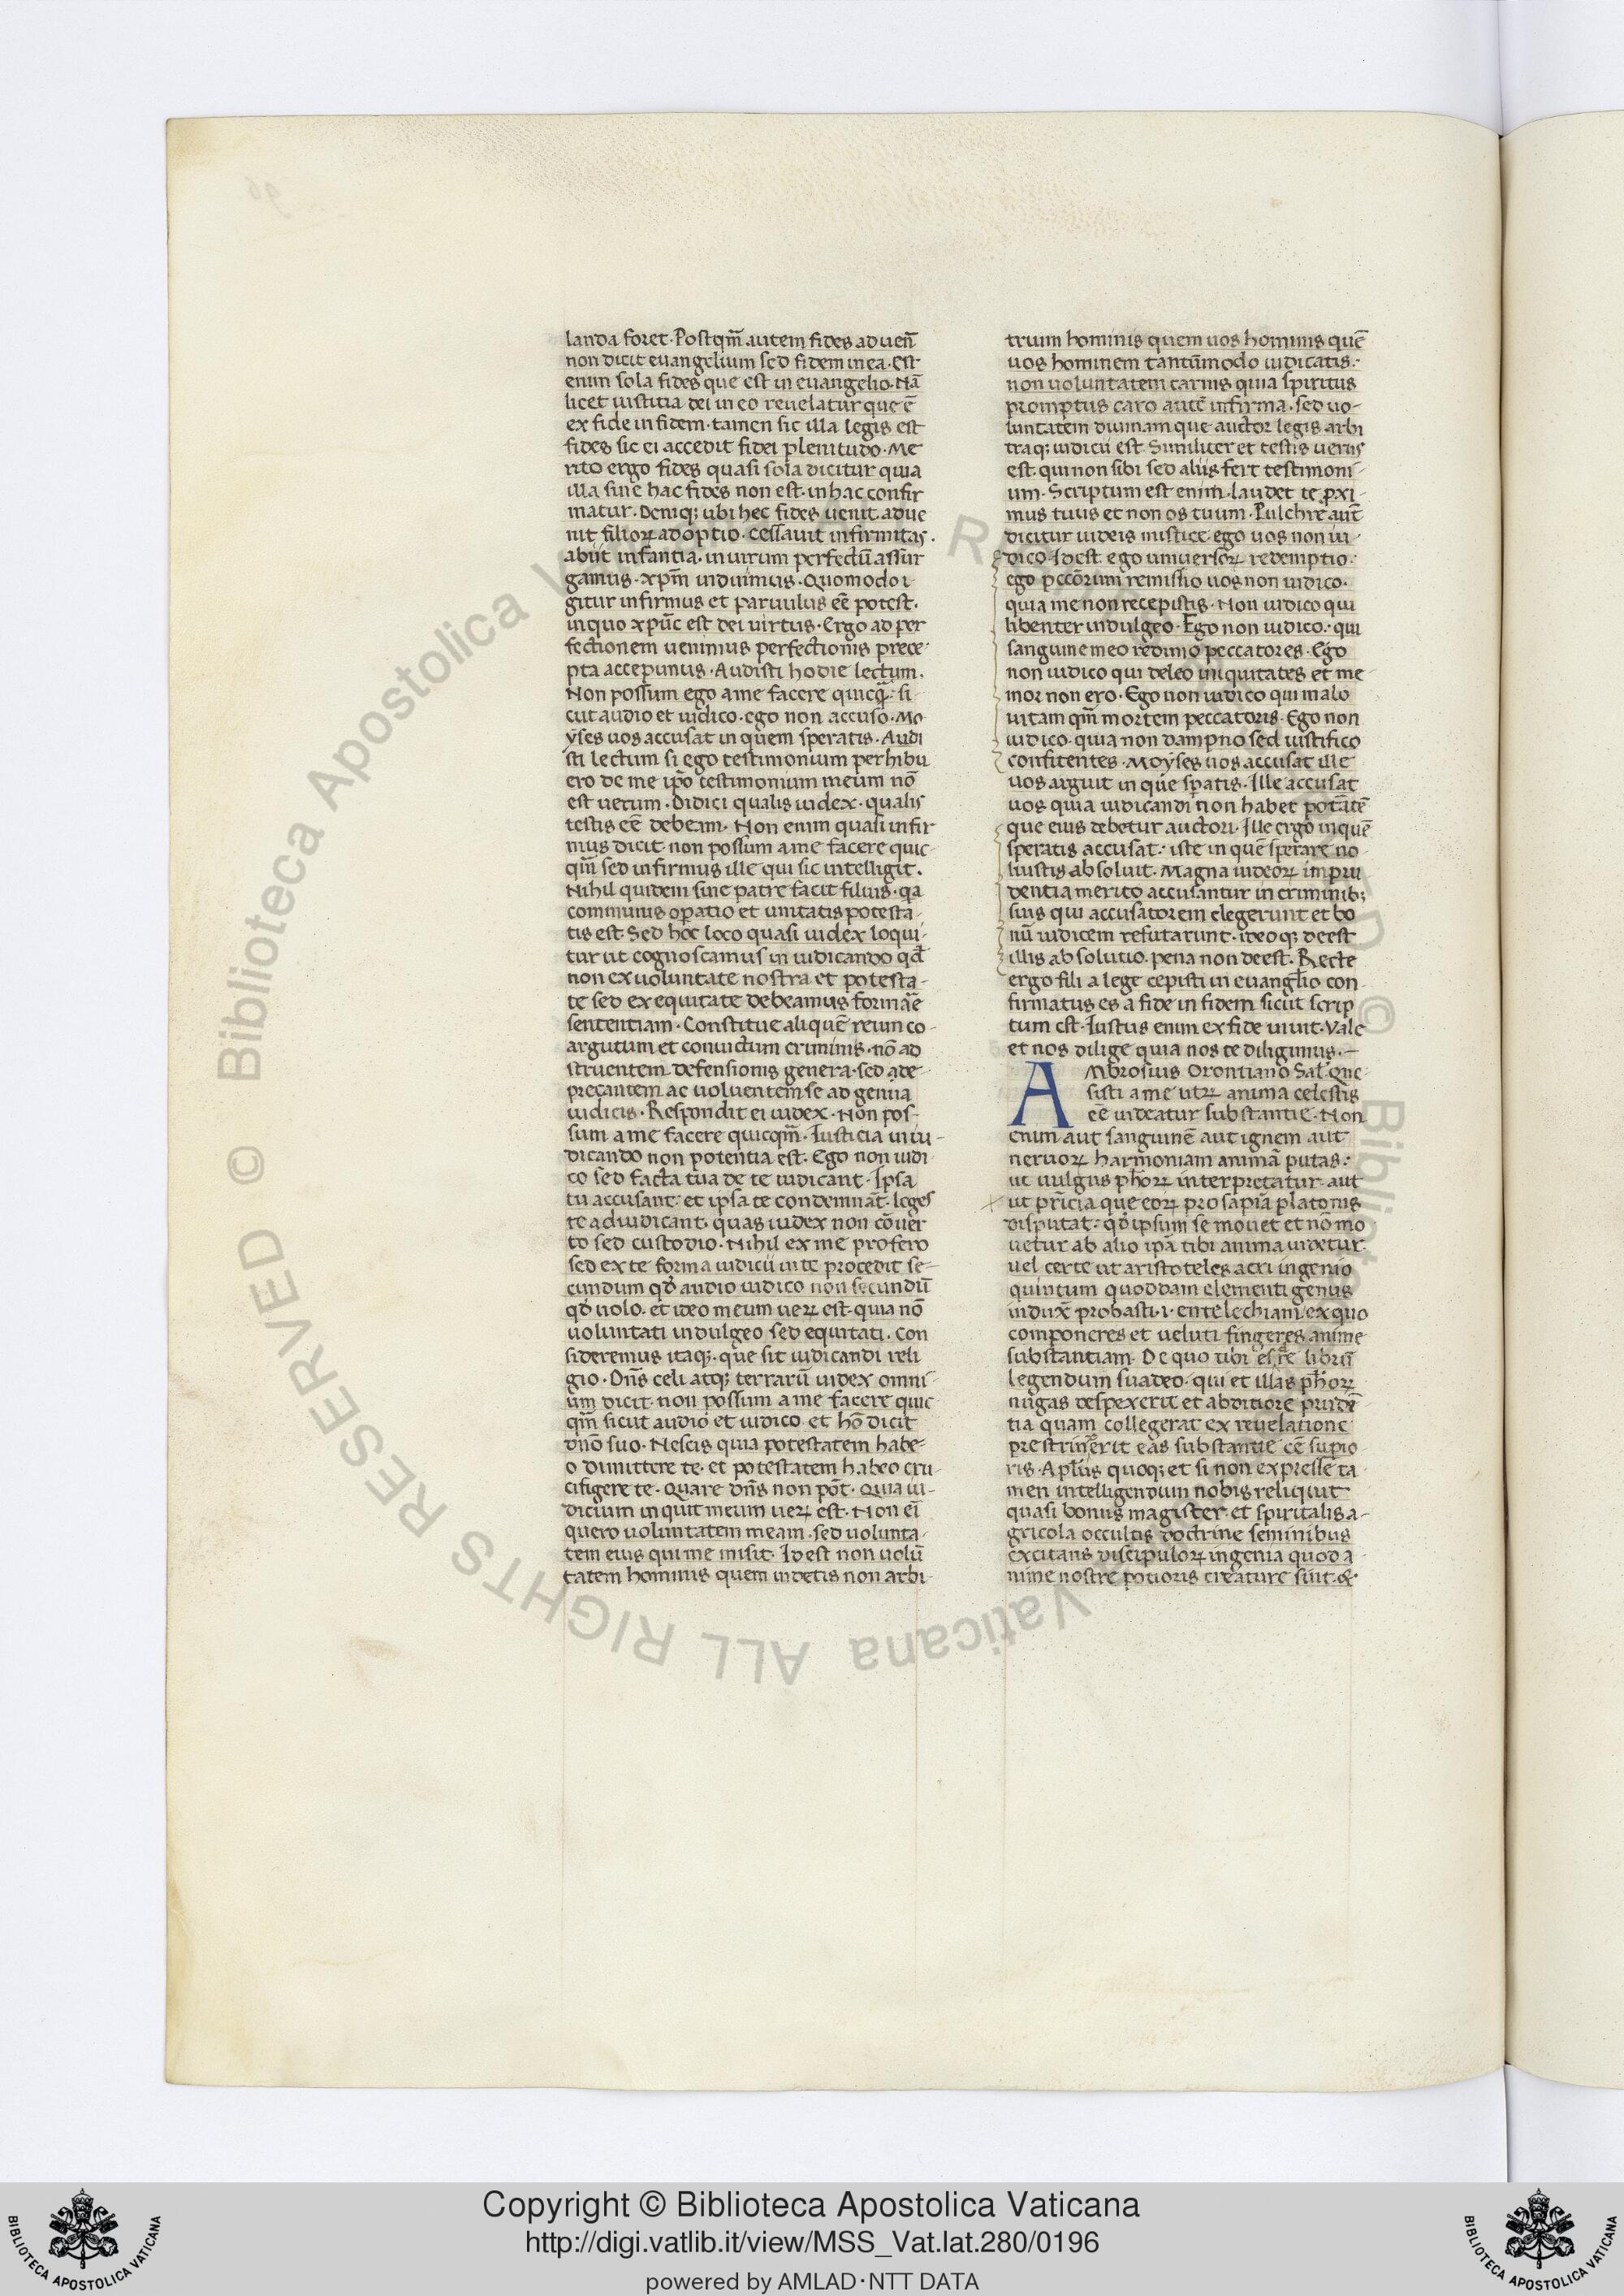 landa foret. Postqm̃ autem fides aduen̄
non dicit euangelium sed fidem in ea. Est
enim sola fides que est in euangelio. Nā
licet iustitia dei in eo reuelatur que ē
ex fide in fidem. tamen sic illa legis est
fides sic ei accedit fidei plenitudo. Me
rito ergo fides quasi sola dicitur quia
illa sine hac fides non est. in hac confir
matur. Deniq; ubi hec fides uenit. adue
nit filioꝝ adoptio. cessauit infirmitas.
abiit infantia. in uirum perfectū assur
gamus. xp̄m induimus. Quomodo i
gitur infirmus et paruulus eē potest.
in quo xp̄uc est dei uirtus. Ergo ad per
fectionem uenimus perfectionis prece
pta accepimus. Audisti hodie lectum.
Non possum ego a me facere quicqͣ: si
cut audio et iudico. ego non accuso. Mo
yses uos accusat in quem speratis. Audi
sti lectum si ego testimonium perhibu
ero de me ip̄o testimonium meum nō
est uerum. Didici qualis iudex. qualis
testis eē debeam. Non enim quasi infir
mus dicit non possum a me facere quic
qm̃ sed infirmus ille qui sic intelligit.
Nihil quidem sine patre facit filius. qa
communis oꝑatio et unitatis potesta-
tis est. Sed hoc loco quasi iudex loqui-
tur ut cognoscamus in iudicando qd̄
non ex uoluntate nostra et potesta-
te sed ex equitate debeamus formare
sententiam. Constitue aliquē reum co-
argutum et conuictum criminis. nō ad
struentem defensionis genera. sed ade
precantem ac uoluentem se ad genua
iudicis. Respondit ei iudex. Non pos-
sum a me facere quicqm̃. Iusticia in iu-
dicando non potentia est. Ego non iudi
co sed facta tua de te iudicant. Ipsa
tu accusant: et ipsa te condemnāt. leges
te adiudicant. quas iudex non cōuer
to sed custodio. Nihil ex me profero
sed ex te forma iudicii in te procedit se-
cundum qd̄ audio iudico non secundū
qd̄ uolo. et ideo meum ueꝝ est. quia nō
uoluntati indulgeo sed equitati. Con
sideremus itaq;. que sit iudicandi reli
gio. Dn̄s celi atq; terrarū iudex omni-
um dicit. non possum a me facere quic
qm̃ sicut audio et iudico. et hō dicit
dn̄o suo. Nescis quia potestatem habe-
o dimittere te. et potestatem habeo cru-
cifigere te. Quare dn̄s non pōt. Quia iu-
dicium inquit meum ueꝝ est. Non ei
quero uoluntatem meam. sed uolunta-
tem eius qui me misit. Idest non uolū
tatem hominis quem uidetis non arbi
trium hominis quem uos hominis quē
uos hominem tantūmodo iudicatis:
non uoluntatem carnis quia spiritus
promptus caro autē infirma. sed uo-
luntatem diuinam que auctor legis arbi
traq; iudicii est. Similiter et testis uerus
est. qui non sibi sed aliis fert testimoni-
um. Scriptum est enim. laudet te ꝓxi-
mus tuus et non os tuum. Pulchre aut̄
dicitur iudeis mistice. ego uos non iu-
dico. Idest. ego uniuersoꝝ redemptio.
ego peccōrum remissio uos non iudico.
quia me non recepistis. Non iudico qui
libenter indulgeo. Ego non iudico: qui
sanguine meo redimo peccatores. Ego
non iudico qui deleo iniquitates et me-
mor non ero. Ego non iudico qui malo
uitam qm̃ mortem peccatoris. Ego non
iudico. quia non dampno sed iustifico
confitentes. Moyses uos accusat ille
uos arguit in quē sꝑatis. Ille accusat
uos quia iudicandi non habet potātē
que eius debetur auctori. Ille ergo in quē
speratis accusat: iste in quē sperare no-
luistis absoluit. Magna iudeoꝝ impru
dentia merito accusantur in criminib;
suis qui accusatorem elegerunt et bo
nū iudicem refutarunt. ideoq; deest
illis absolutio. pena non deest. Recte
ergo fili a lege cepisti in euangl̄io con-
firmatus es a fide in fidem sicut scrip
tum est. Iustus enim ex fide uiuit. Vale
et nos dilige quia nos te diligimus.—
AMbrosius Orontiano Sal. Que
sisti a me utꝝ anima celestis
eē uideatur substantie. Non
enim aut sanguinē aut ignem aut
neruoꝝ harmoniam animā putas:
ut uulgus ph̄oꝝ interpretatur. aut
ut pr̄icia que eoꝝ prosapiā platonis
disputat: qd̄ ipsum se mouet et nō mo
uetur ab alio ip̄a tibi anima uidetur.
uel certe ut aristoteles acri ingenio
quintum quoddam elementi genus
induxͭ probasti. i. entelechiam ex quo
componeres et ueluti fingeres anime
substantiam. De quo tibi esͣre librū
legendum suadeo. qui et illas ph̄oꝝ
nugas despexerit et abditiorē prudē
tia quam collegerat ex reuelatione
prestrinxerit eas substantie eē supio-
ris. Apl̄us quoq; et si non expresse ta
men intelligendum nobis reliquit
quasi bonus magister. et spiritalis a-
gricola occultis doctrine seminibus
excitans discipuloꝝ ingenia quod a
nime nostre potioris creature sint. &.
Copyright © Biblioteca Apostolica Vaticana
http://digi.vatlib.it/view/MSS_Vat.lat.280/0196
powered by AMLAD·NTT DATA